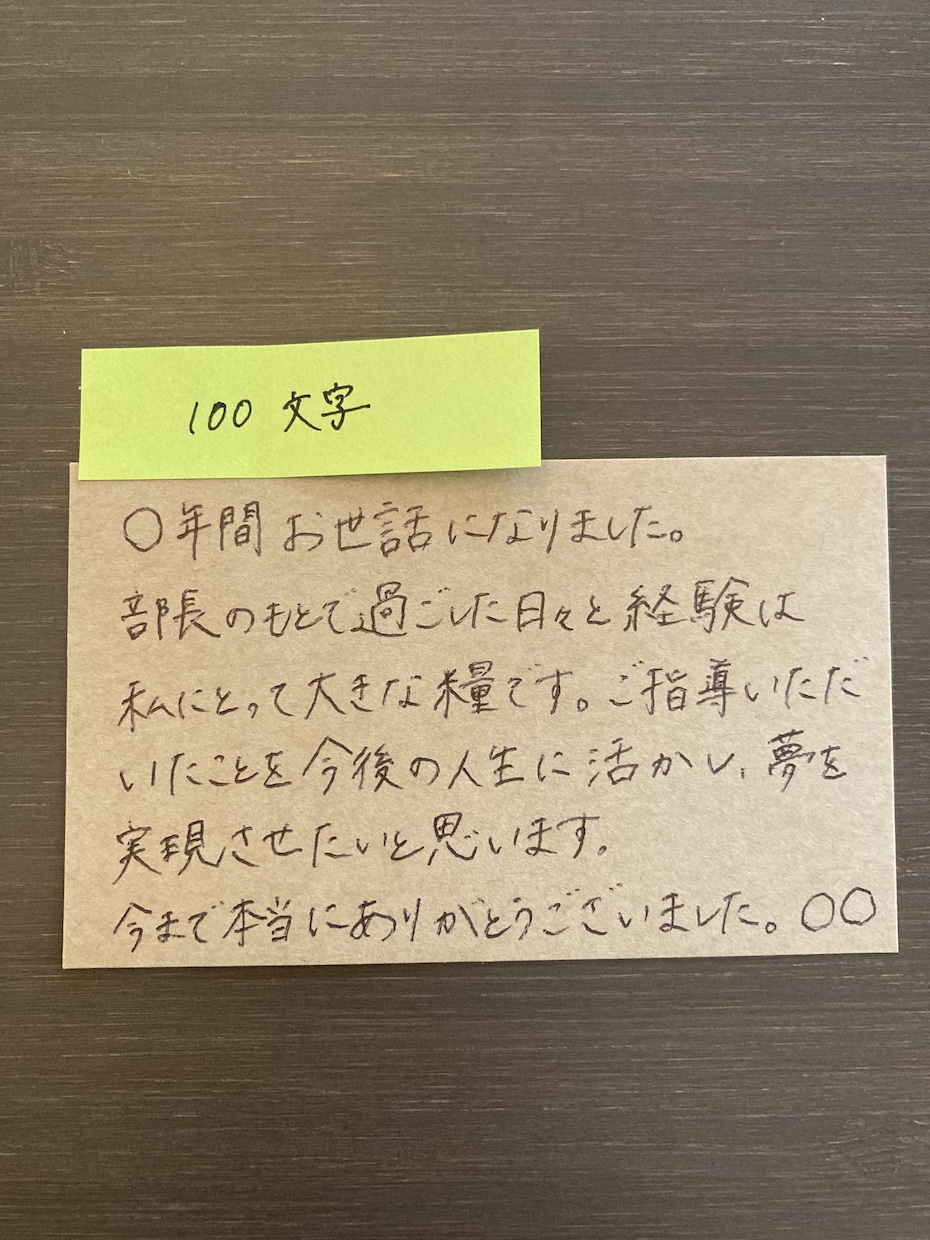 100 文字
〇年間お世話になりました。
部長のもとで過ごした日々と経験は
私にとって大きな糧です。ご指導いただ
いたことを今後の人生に活かし、夢を
実現させたいと思います。
今まで本当にありがとうございました。〇〇